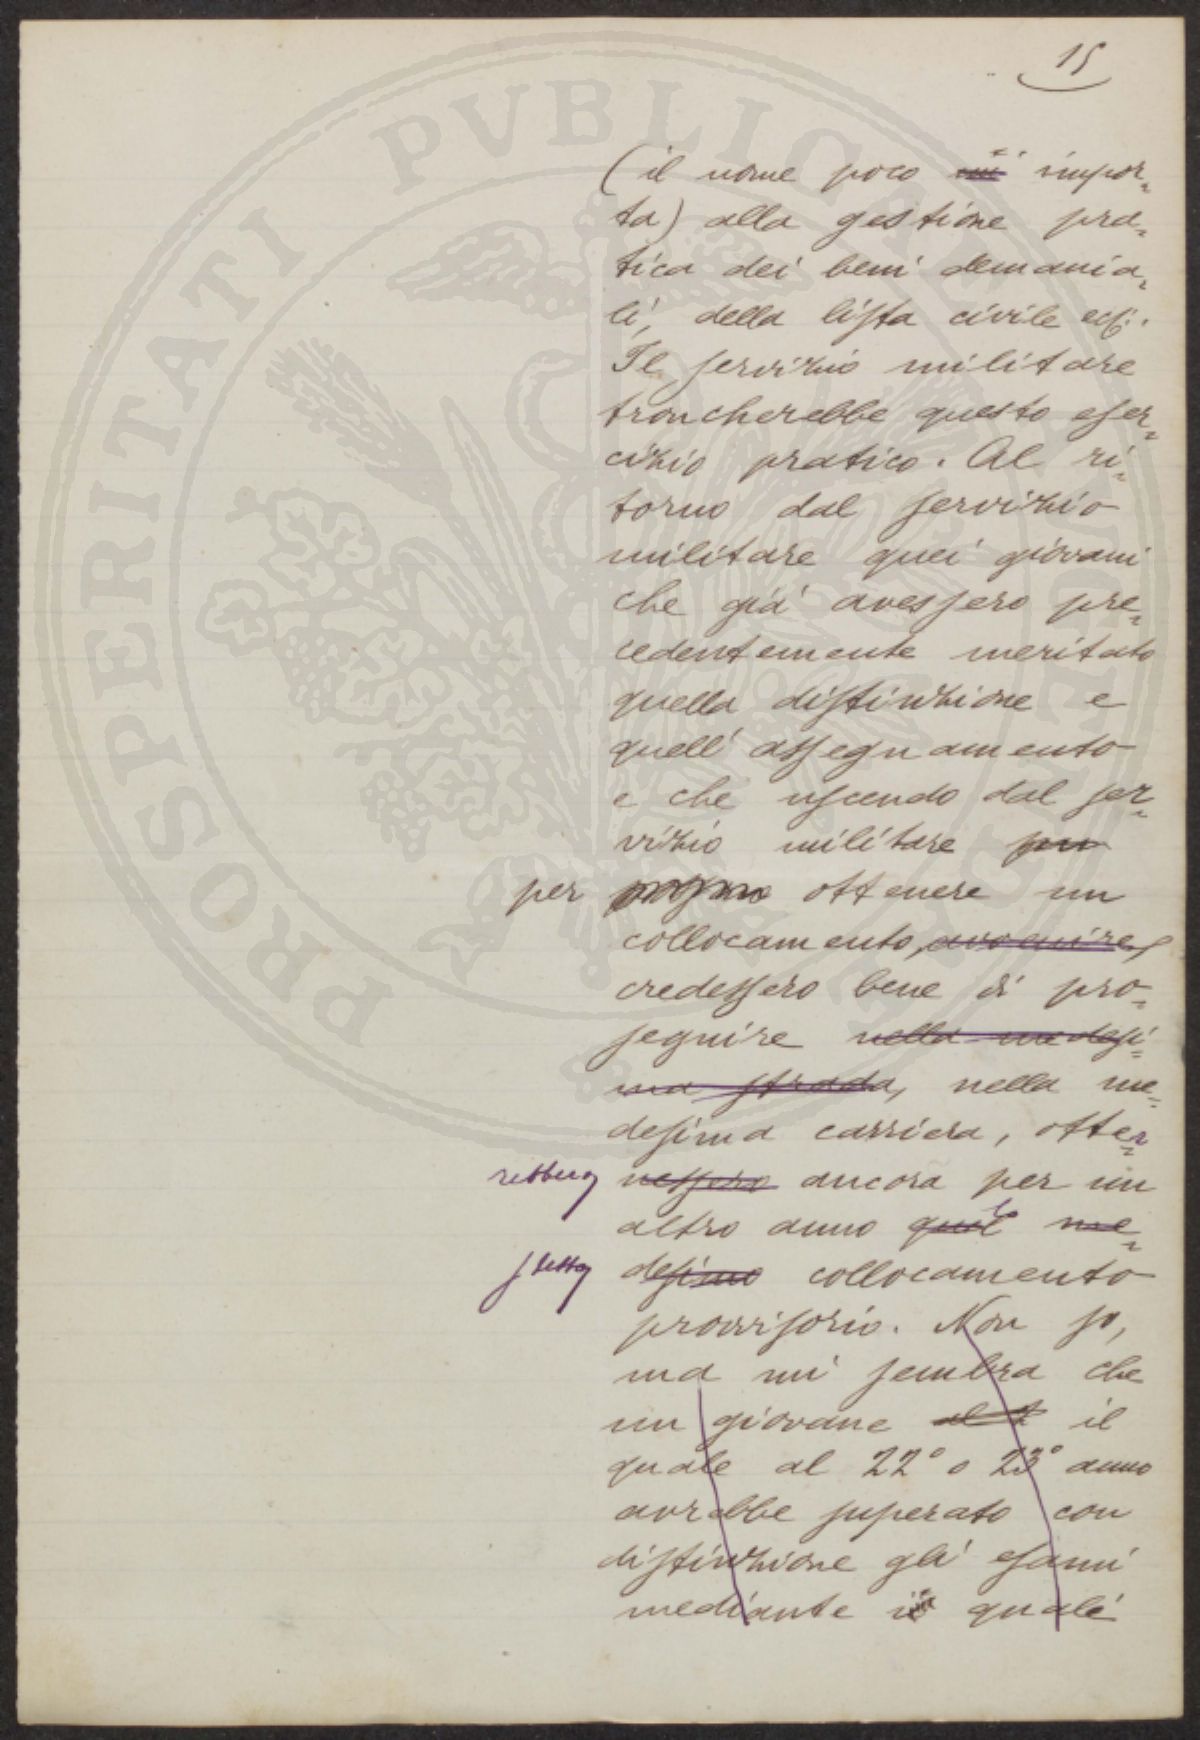 15
(il nome poco mi impor-
ta) alla gestione pra-
tica dei beni demania-
li, della lista civile ecc..
Il servizio militare
troncherebbe questo eser-
cizio pratico. Al ri-
torno dal servizio
militare quei giovani
che già avessero pre-
cedentemente meritato
quella distinzione e
quell'assegnamento
e che uscendo dal ser-
vizio militare pu
per ottenere un
collocamento,
credessero bene di pro-
seguire nella medesi-
ma strada, nella me-
desima carriera, otter-
rebbero nessero ancora per un
altro anno quel lo me-
stesso desimo collocamento
provvisorio. Non so,
ma mi sembra che
un giovane il
quale al 22° o 23° anno
avrebbe superato con
distinzione gli esami
mediante i quali
PROSPERITATI PVBLICAE AVGENDAE